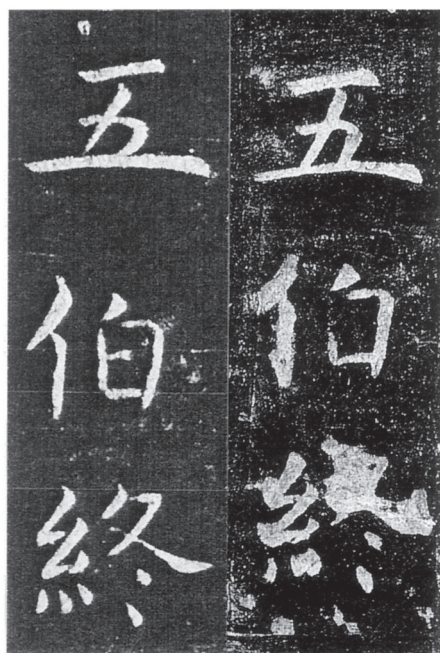 五伯終
五伯終